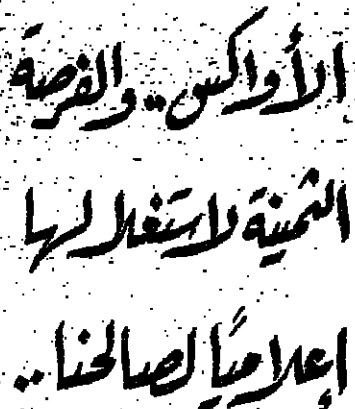 الأواكس .. والفرصة
الثمينة لاستغلالها
إعلامياً لصالحنا ..